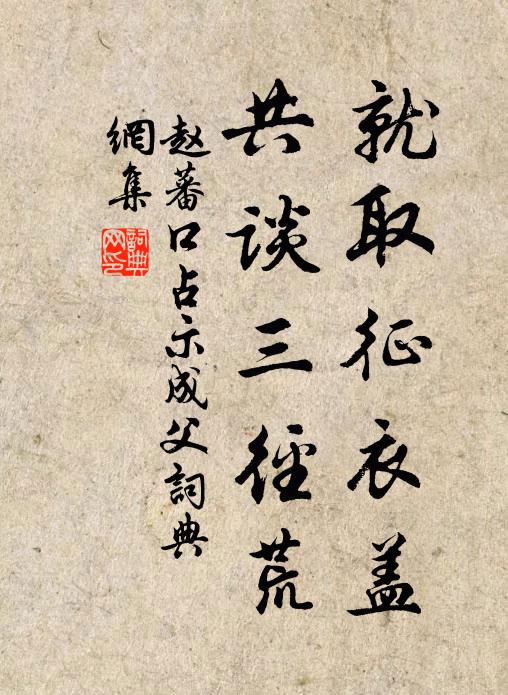 就取征衣盖
共谈三徑荒
赵蕃口占示成父詞典
網集
詞典
网印